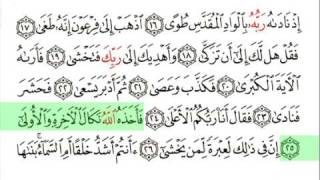 إِذْ نَادَىٰهُ رَبُّهُ بِالْوَادِ الْمُقَدَّسِ طُوًى ١٦ اذْهَبْ إِلَىٰ فِرْعَوْنَ إِنَّهُ طَغَىٰ ١٧
فَقُلْ هَل لَّكَ إِلَىٰ أَن تَزَكَّىٰ ١٨ وَأَهْدِيَكَ إِلَىٰ رَبِّكَ فَتَخْشَىٰ ١٩ فَأَرَىٰهُ
الْآيَةَ الْكُبْرَىٰ ٢٠ فَكَذَّبَ وَعَصَىٰ ٢١ ثُمَّ أَدْبَرَ يَسْعَىٰ ٢٢ فَحَشَرَ
فَنَادَىٰ ٢٣ فَقَالَ أَنَا رَبُّكُمُ الْأَعْلَىٰ ٢٤ فَأَخَذَهُ اللَّهُ نَكَالَ الْآخِرَةِ وَالْأُولَىٰ
٢٥ إِنَّ فِي ذَٰلِكَ لَعِبْرَةً لِّمَن يَخْشَىٰ ٢٦ ءَأَنتُمْ أَشَدُّ خَلْقًا أَمِ السَّمَاءُ ۚ بَنَىٰهَا